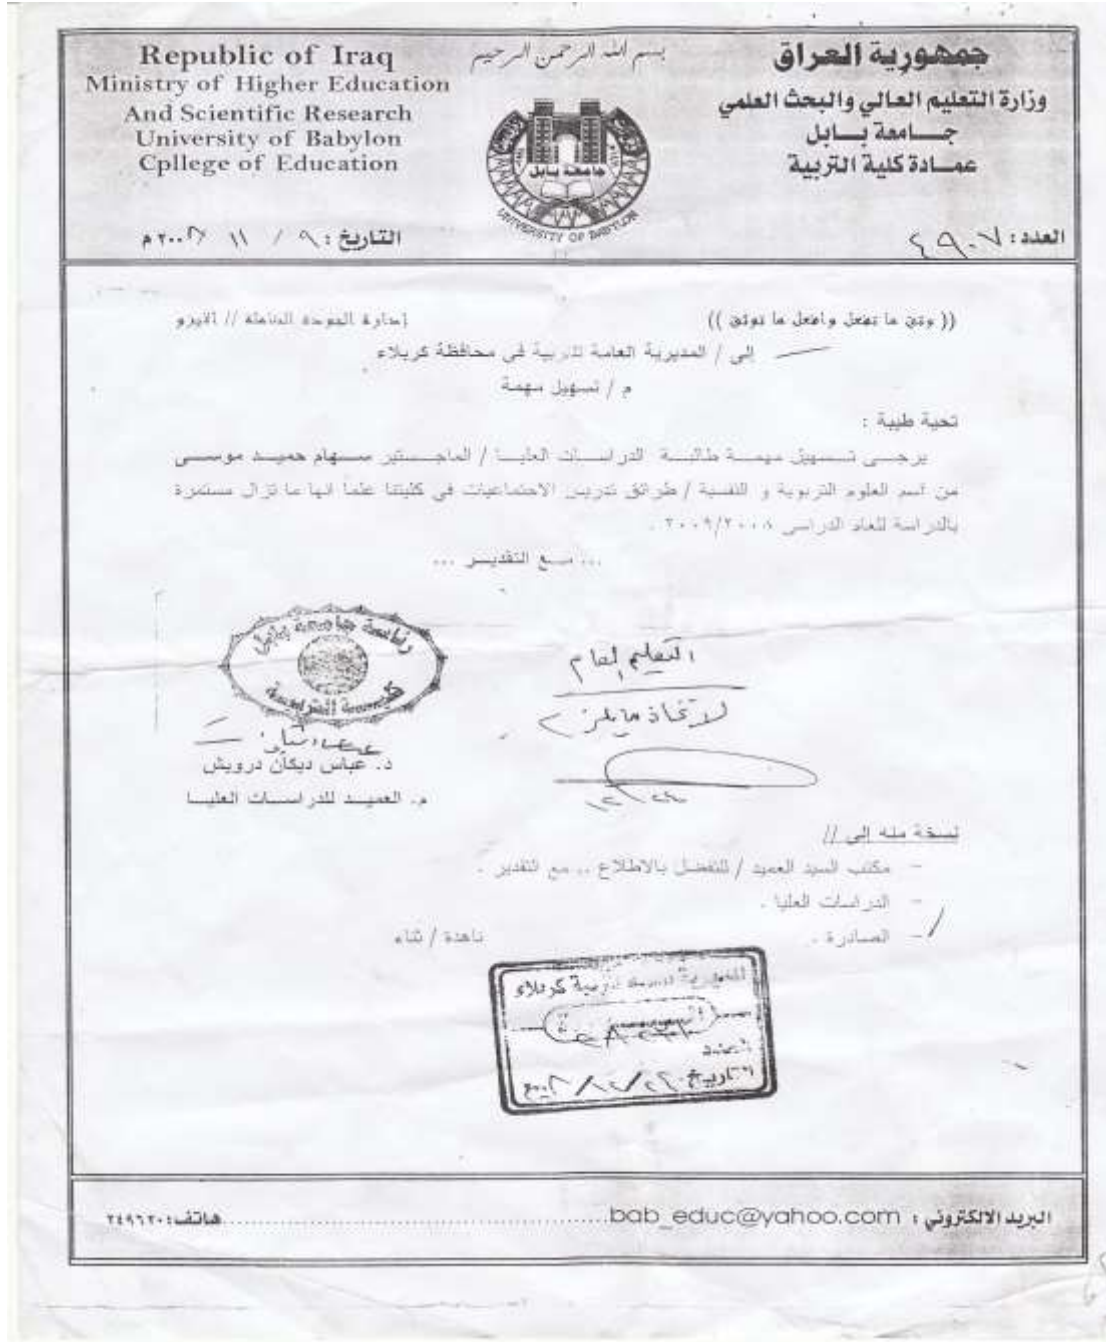 Republic of Iraq
Ministry of Higher Education
And Scientific Research
University of Babylon
Cpllege of Education
بسم الله الرحمن الرحيم
جمهورية العراق
وزارة التعليم العالي والبحث العلمي
جـــامعة بــابل
عمــادة كلية التربية
جامعة بابل
UNIVERSITY OF BABYLON
العدد: ٤٩٠٧
التاريخ: ٩ / ١١ / ٢٠٠٨ م
(( وثق ما تفعل وافعل ما توثق ))
إدارة الجودة الشاملة // الايزو
إلى / المديرية العامة للتربية في محافظة كربلاء
م / تسهيل مهمة
تحية طيبة :
يرجــى تــسهيل مهمــة طالبــة الدراســات العليــا / الماجــستير ســهام حميــد موســى
من قسم العلوم التربوية و النفسية / طرائق تدريس الاجتماعيات في كليتنا علماً انها ما تزال مستمرة
بالدراسة للعام الدراسي ٢٠٠٩/٢٠٠٨ .
... مــع التقديــر ...
رئاسة جامعة بابل
كليــة التربيــة
التعليم العام
لاتخاذ مايلزم
١٢/٢٤
د. عباس ديكان درويش
م. العميــد للدراســات العليــا
نسخة منه إلى //
- مكتب السيد العميد / للتفضل بالاطلاع .. مع التقدير .
- الدراسات العليا .
- الصادرة .
ناهدة / ثناء
المديرية العامة لتربية كربلاء
العدد
التاريخ
البريد الالكتروني : bab_educ@yahoo.com
هاتف: ٢٤٩٦٢٠